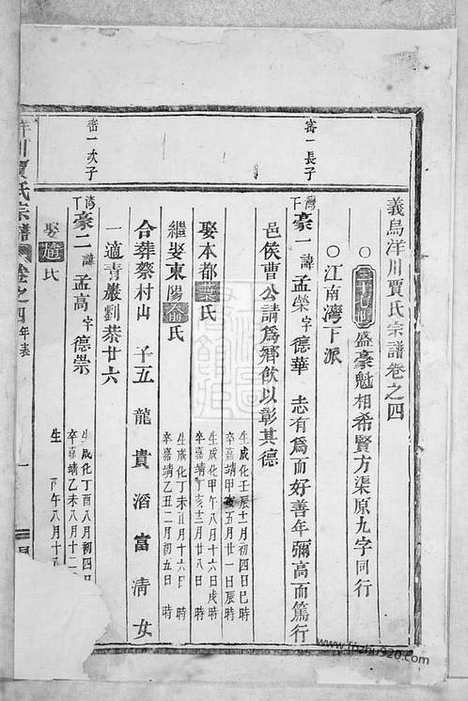 義烏洋川賈氏宗譜卷之四
○盛豪魁相希賢方渠原九字同行
○江南灣下派
審一長子
灣下豪一諱孟榮字德華 志有為而好善年彌高而篤行
邑侯曹公請為鄉飲以彰其德
生成化壬辰十二月初四日巳時
卒嘉靖甲 五月廿一日辰時
娶本都葉氏
生成化甲午八月十六日戌時
卒嘉靖丁亥三月廿八日 時
繼娶東陽 氏
生成化丁未正月十六日 時
卒嘉靖乙丑二月初五日 時
合葬蔡村山 子五 龍 貴 滔 富 清 女
一適青巖劉恭廿六
審一次子
灣下豪二諱孟高字德崇
生成化丁酉八月初四日
卒嘉靖乙未八月十二
娶趙氏
生 丙午八月十五
洋川賈氏宗譜 卷之四
www.jiapu920.com